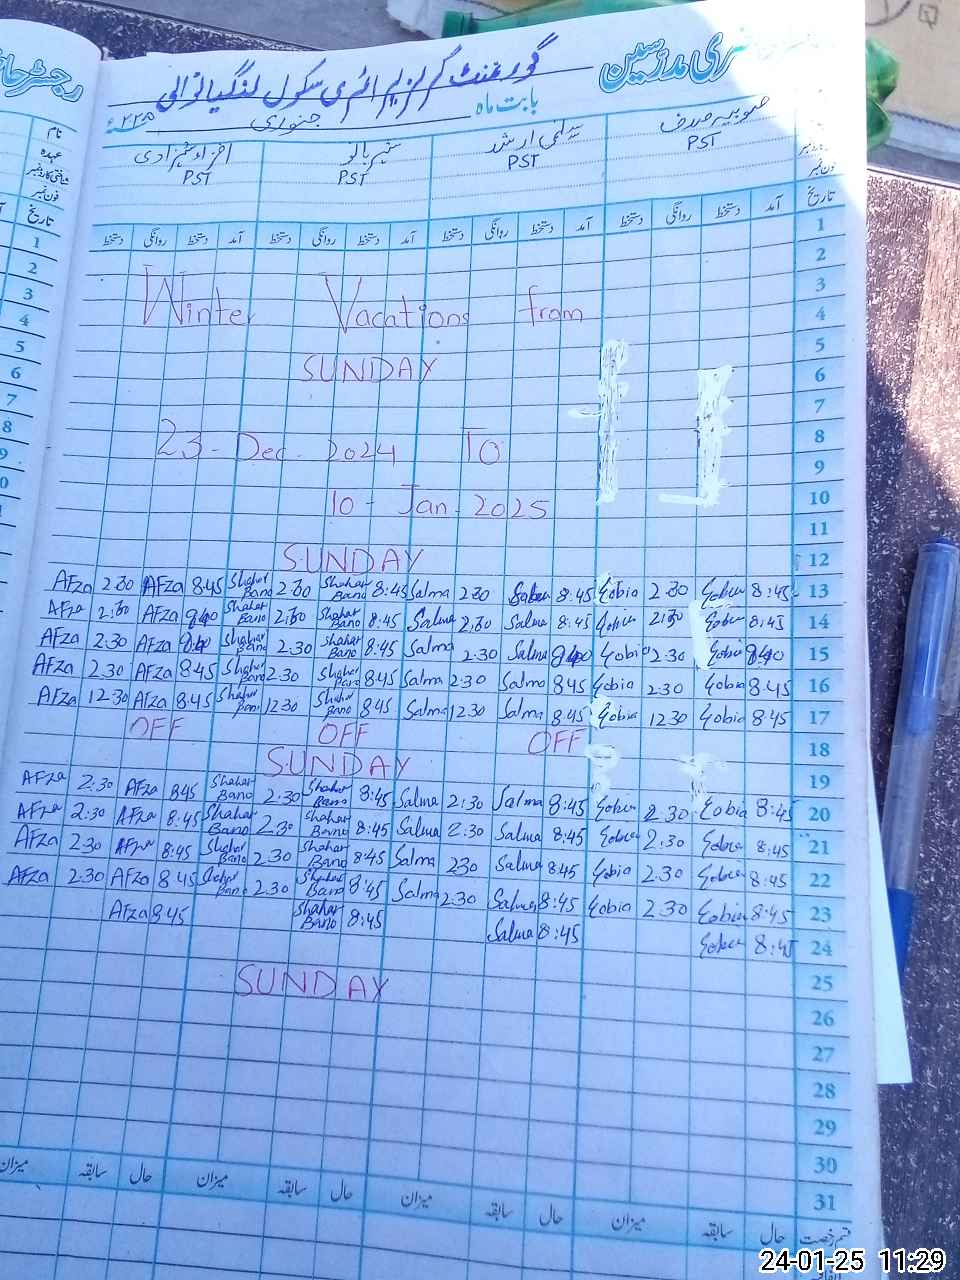 گورنمنٹ گرلز پرائمری سکول لنگیانوالی
ری مدرسین
رجسٹر حا
بابت ماہ جنوری
صوبیہ صدف
سلمیٰ ارشد
افزا شہزادی
PST PST PST PST
نام
عہدہ
فون نمبر
تاریخ
آمد دستخط روانگی دستخط آمد دستخط روانگی دستخط آمد دستخط روانگی دستخط آمد دستخط روانگی دستخط تاریخ
1
2
3
Winter Vacations from 4
5
SUNDAY 6
7
23 - Dec - 2024 To 8
9
10 - Jan - 2025 10
11
SUNDAY 12
Afza 2:30 Afza 8:45 Shahar Bano 2:30 Shahar Bano 8:45 Salma 2:30 Salma 8:45 2:30 8:45 13
Afza 2:30 Afza Shahar Bano 2:30 Shahar Bano 8:45 Salma 2:30 Salma 8:45 2:30 8:45 14
Afza 2:30 Afza Shahar Bano 2:30 Shahar Bano 8:45 Salma 2:30 Salma 2:30 15
Afza 2:30 Afza 8:45 Shahar Bano 2:30 Shahar Bano 8:45 Salma 2:30 Salma 8:45 2:30 8:45 16
Afza 12:30 Afza 8:45 Shahar Bano 12:30 Shahar Bano 8:45 Salma 12:30 Salma 8:45 12:30 8:45 17
OFF OFF OFF 18
SUNDAY 19
Afza 2:30 Afza 8:45 Shahar Bano 2:30 Shahar Bano 8:45 Salma 2:30 Salma 8:45 2:30 8:45 20
Afza 2:30 Afza 8:45 Shahar Bano 2:30 Shahar Bano 8:45 Salma 2:30 Salma 8:45 2:30 8:45 21
Afza 2:30 Afza 8:45 Shahar Bano 2:30 Shahar Bano 8:45 Salma 2:30 Salma 8:45 2:30 8:45 22
Afza 2:30 Afza 8:45 Shahar Bano 2:30 Shahar Bano 8:45 Salma 2:30 Salma 8:45 2:30 8:45 23
Afza 8:45 Shahar Bano 8:45 Salma 8:45 8:45 24
25
SUNDAY 26
27
28
29
30
31
قسم رخصت حال سابقہ میزان حال سابقہ میزان حال سابقہ میزان حال سابقہ میزان
24-01-25 11:29